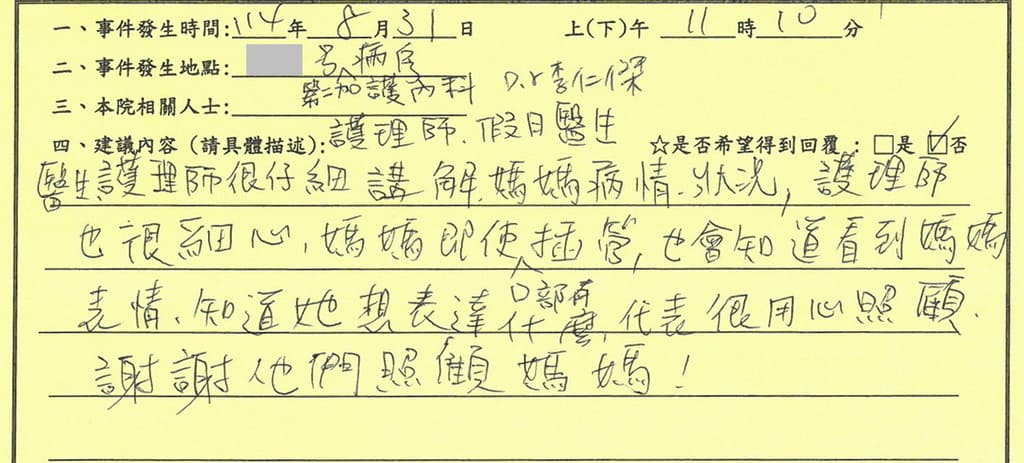 一、事件發生時間:114年 8月31日 上(下)午 11時10分
二、事件發生地點: 號病房
第二加護內科 D.r 李仁傑
三、本院相關人士:
護理師.假日醫生
四、建議內容 (請具體描述): ☆是否希望得到回覆 : □是 ☑否
醫生、護理師很仔細講解.媽媽病情.狀況,護理師
也很細心,媽媽即使插管,也會知道看到媽媽
口部有
表情、知道她想表達什麼,代表很用心照顧.
謝謝他們照顧媽媽!